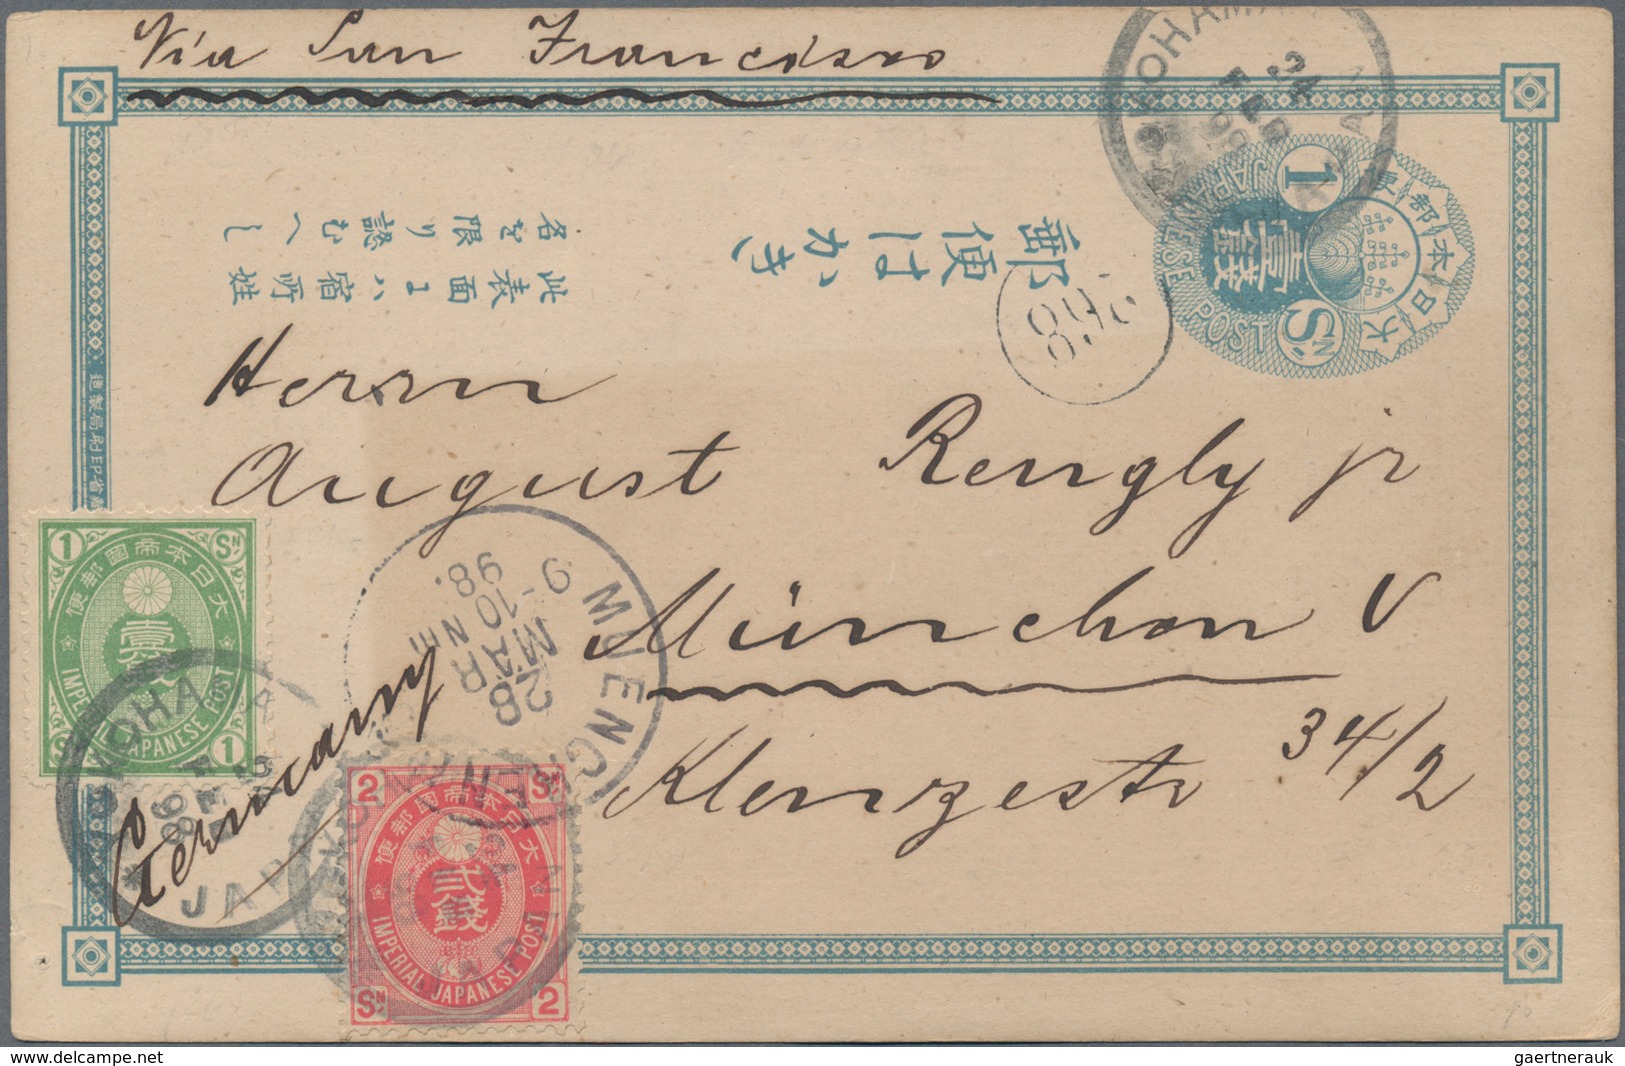 Via San Francisco
YOKOHAMA
JAPAN
24
FEB
98
1
JAPANESE POST
壹錢
SN
大日本郵便
郵便はかき
此表面ニハ宿所姓
名を限り認むへし
892
Herrn
August Rengly jr
München V
Klenzestr 34/2
Germany
1 SN
大日本帝國郵便
壹
IMPERIAL JAPANESE POST
SN 1
YOKOHAMA
FEB
98
JAPAN
MUENCHEN
28
MAR
9-10 NM
98.
2 SN
大日本帝國郵便
貳錢
IMPERIAL JAPANESE POST
SN 2
gaertnerauk